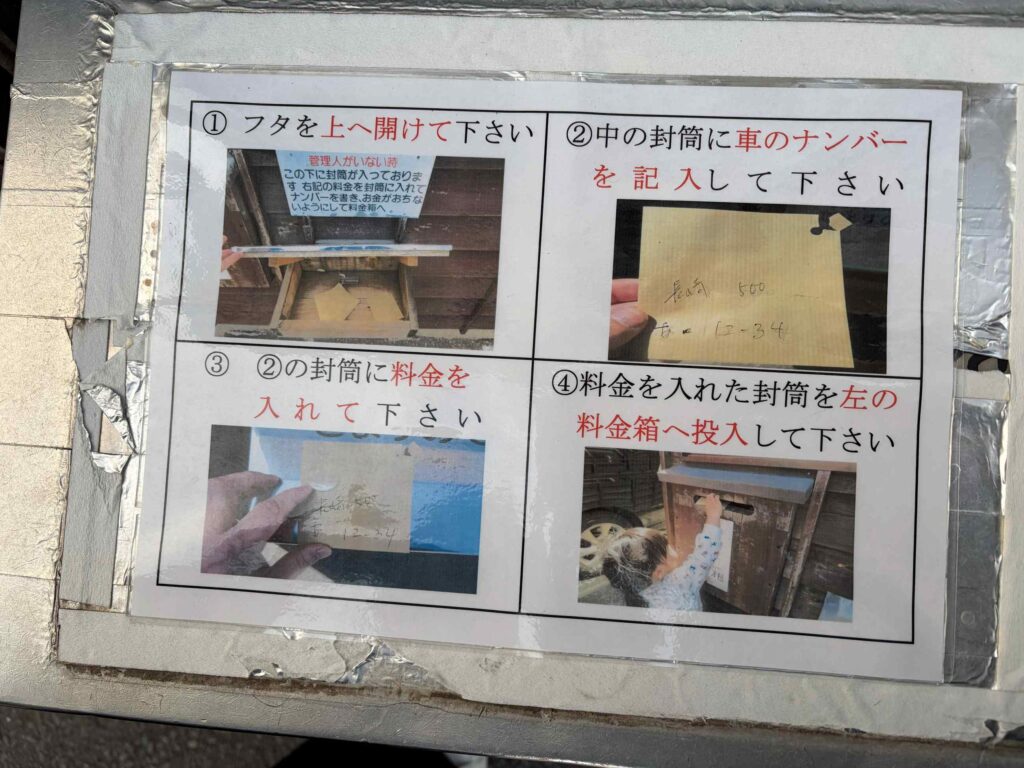 ① フタを上へ開けて下さい
管理人がいない時
この下に封筒が入っておりま
す 右記の料金を封筒に入れて
ナンバーを書き、お金がおちな
いようにして料金箱へ。
②中の封筒に車のナンバー
を記入して下さい
長崎 500
あ - 12-34
③ ②の封筒に料金を
入れて下さい
長崎 500
あ - 12-34
④料金を入れた封筒を左の
料金箱へ投入して下さい